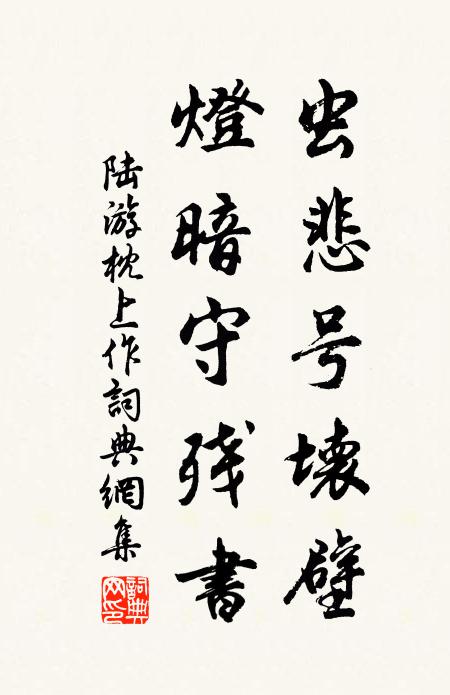 虫悲号壊壁
燈暗守残書
陆游枕上作詞典網集
詞典网印